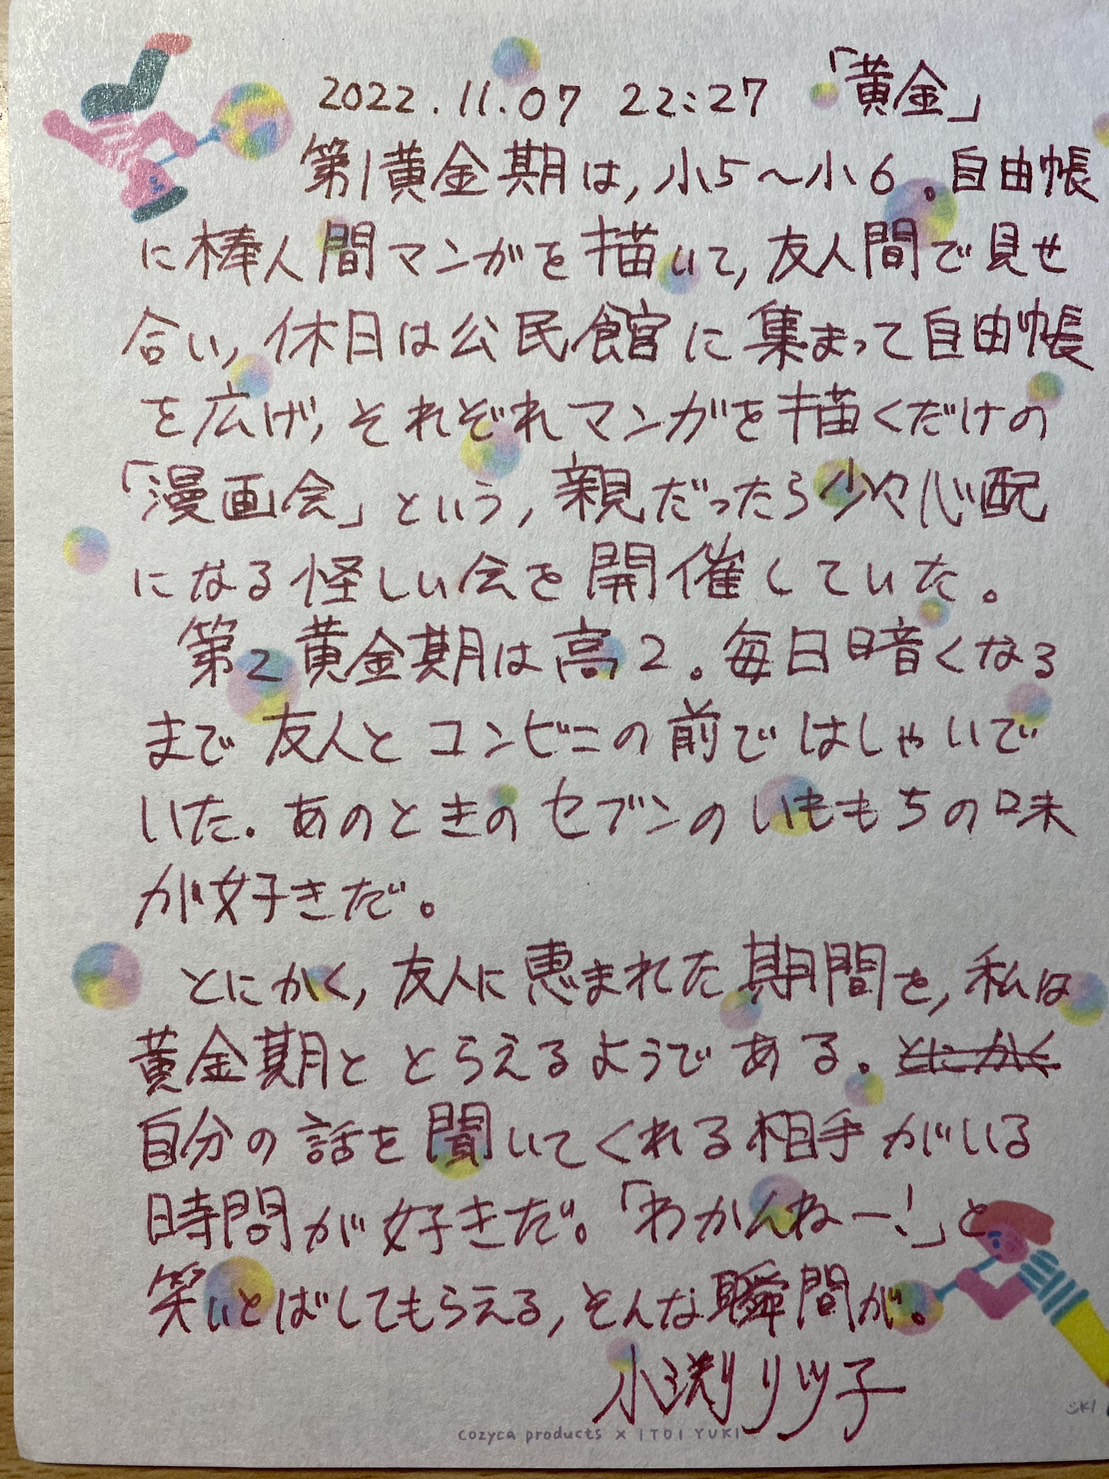 2022.11.07 22:27 「黄金」
第1黄金期は,小5〜小6。自由帳
に棒人間マンガを描いて,友人間で見せ
合い,休日は公民館に集まって自由帳
を広げ,それぞれマンガを描くだけの
「漫画会」という,親だったら少々心配
になる怪しい会を開催していた。
第2黄金期は高2。毎日暗くなる
まで友人とコンビニの前ではしゃいで
いた。あのときのセブンのいももちの味
が好きだ。
とにかく,友人に恵まれた期間を,私は
黄金期ととらえるようである。とにかく
自分の話を聞いてくれる相手がいる
時間が好きだ。「わかんねー!」と
笑いとばしてもらえる,そんな瞬間が。
小渕リツ子
cozyca products × ITOI YUKI